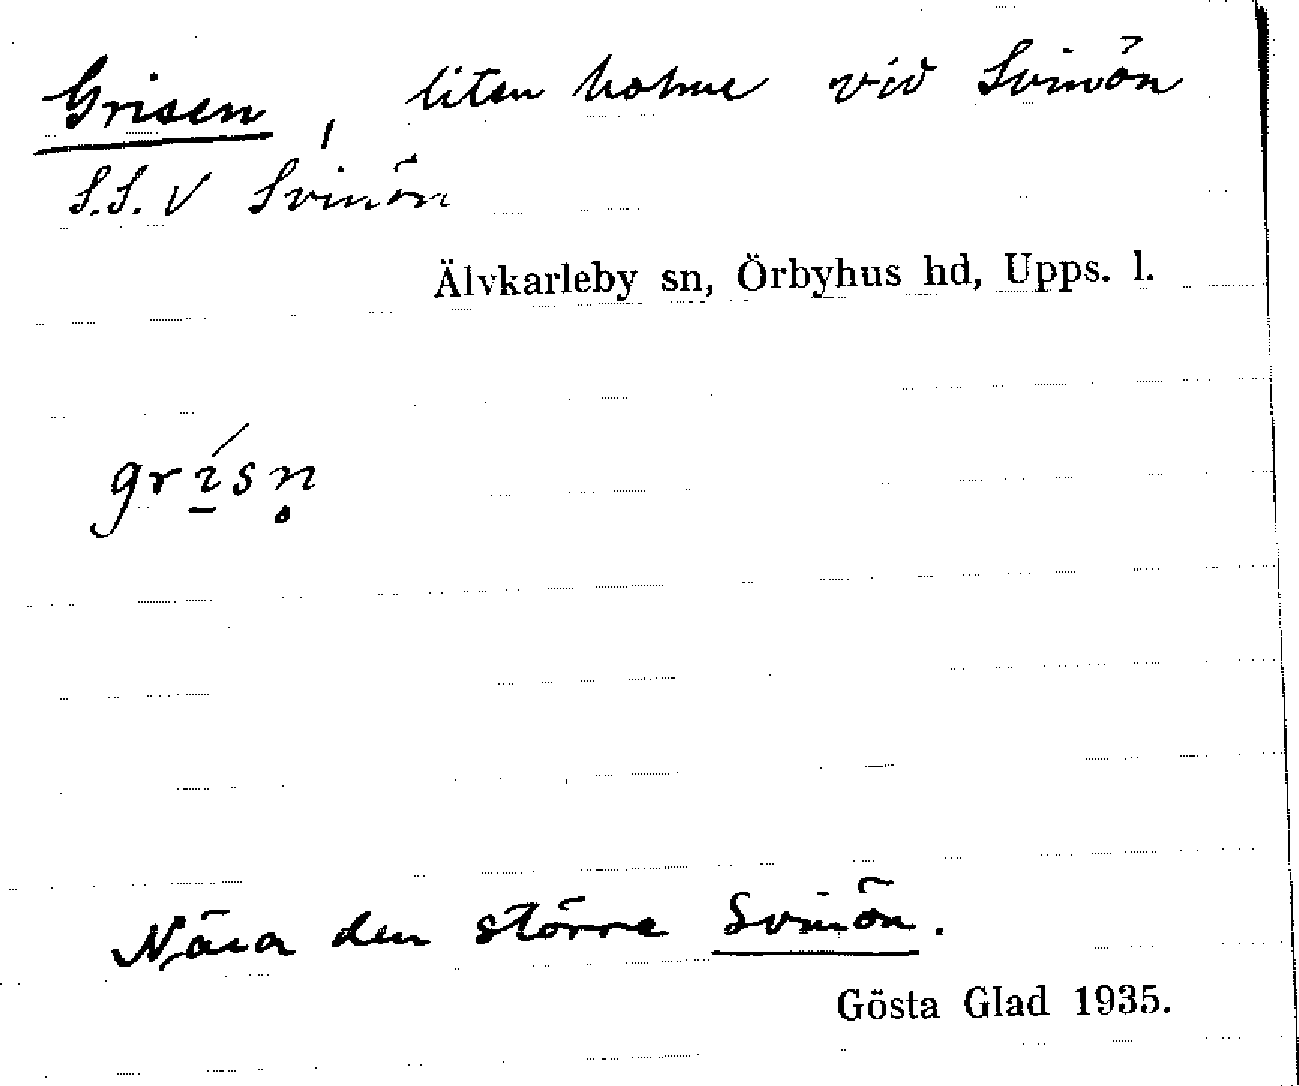 Grisen, liten holme vid Svinön
S.S.V Svinön
Älvkarleby sn, Örbyhus hd, Upps. l.
grı̱́sṇ
Nära den större Svinön.
Gösta Glad 1935.